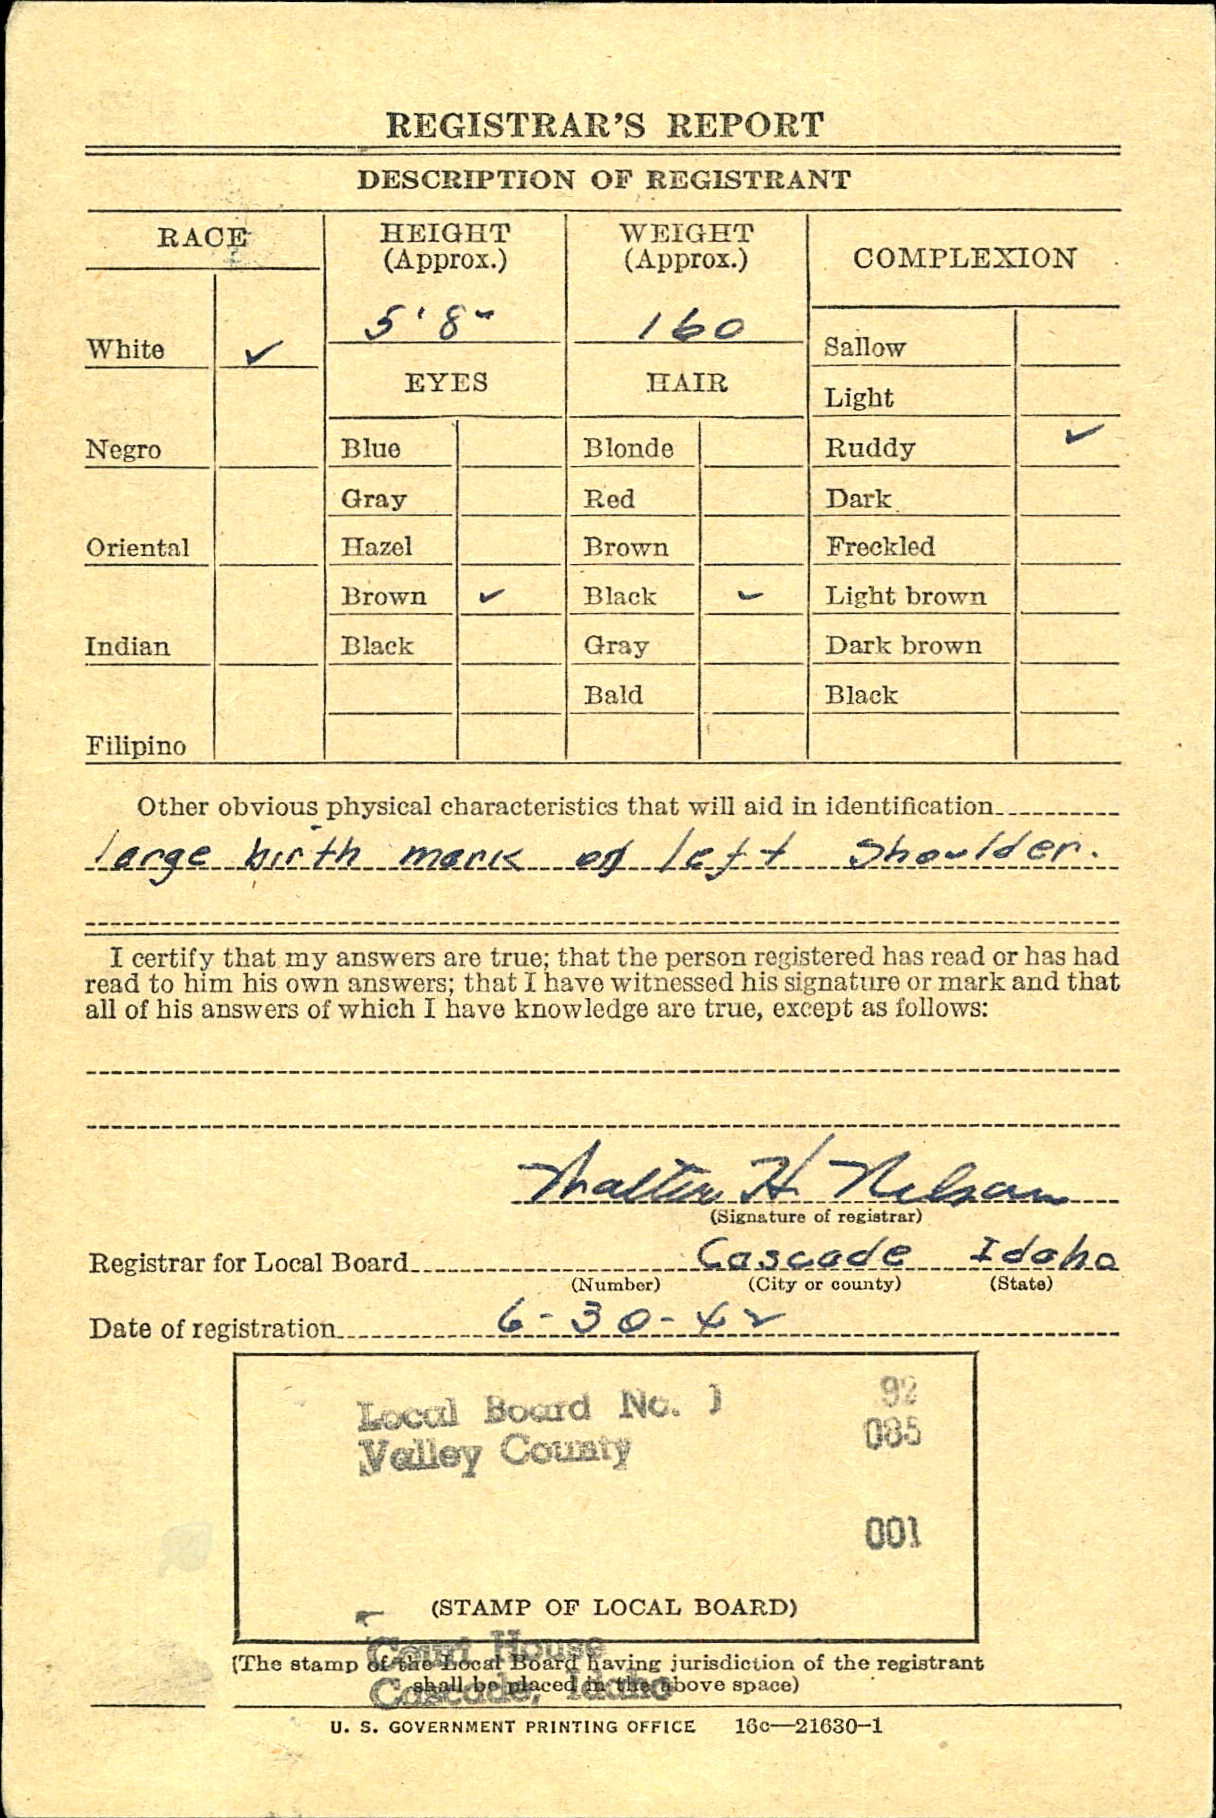 REGISTRAR'S REPORT
DESCRIPTION OF REGISTRANT
RACE
HEIGHT
(Approx.)
WEIGHT
(Approx.)
COMPLEXION
5' 8"
160
White ✓
Sallow
EYES
HAIR
Light
Negro
Blue
Blonde
Ruddy ✓
Gray
Red
Dark
Oriental
Hazel
Brown
Freckled
Brown ✓
Black ✓
Light brown
Indian
Black
Gray
Dark brown
Bald
Black
Filipino
Other obvious physical characteristics that will aid in identification
large birth mark on left shoulder.
I certify that my answers are true; that the person registered has read or has had
read to him his own answers; that I have witnessed his signature or mark and that
all of his answers of which I have knowledge are true, except as follows:
Walter H Nelson
(Signature of registrar)
Registrar for Local Board Cascade Idaho
(Number) (City or county) (State)
Date of registration 6-30-42
Local Board No. 1 92
Valley County 085
001
(STAMP OF LOCAL BOARD)
Court House
(The stamp of the Local Board having jurisdiction of the registrant
shall be placed in the above space)
Cascade, Idaho
U. S. GOVERNMENT PRINTING OFFICE 16c—21630-1